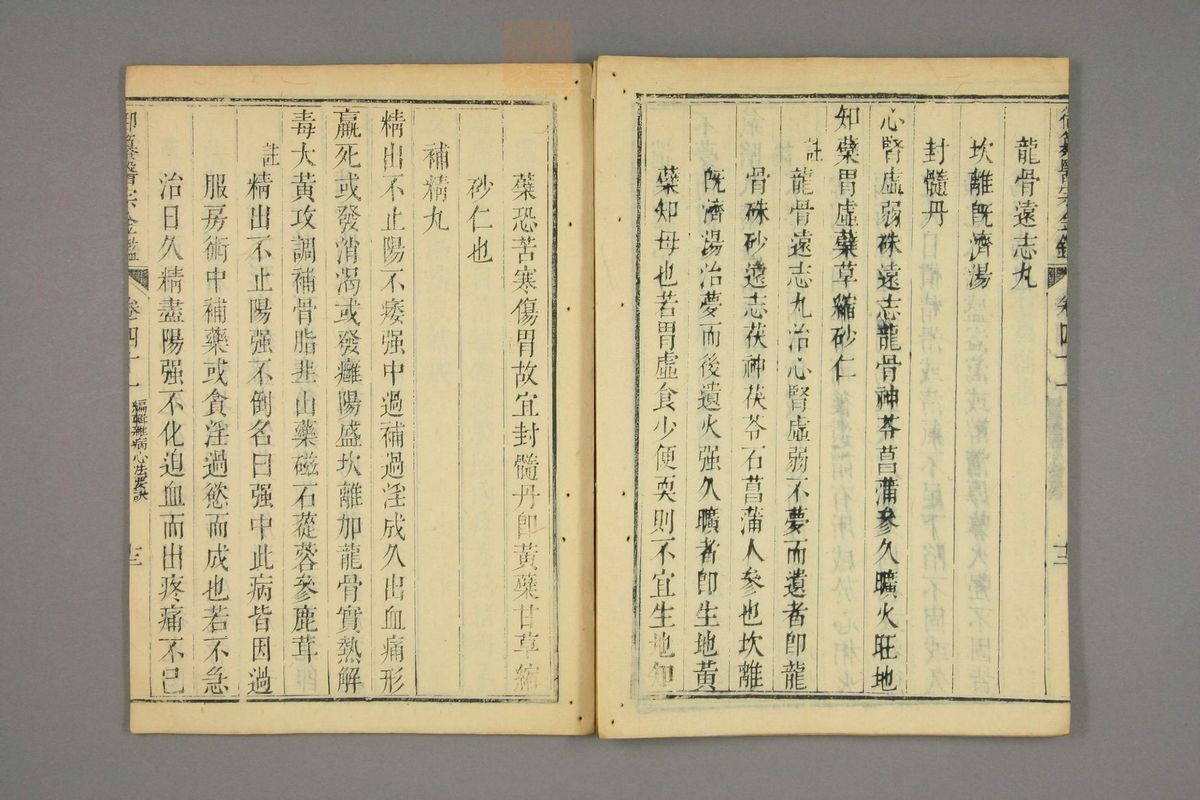 龍骨遠志丸
坎離既濟湯
封髓丹
心腎虛弱硃遠志龍骨神苓菖蒲參久曠火旺地
知蘗胃虛蘗草縮砂仁
註龍骨遠志丸治心腎虛弱不夢而遺者卽龍
骨硃砂遠志茯神茯苓石菖蒲人參也坎離
既濟湯治夢而後遺火强久曠者卽生地黃
蘗知母也若胃虛食少便耎則不宜生地知
蘗恐苦寒傷胃故宜封髓丹卽黃蘗甘草縮
砂仁也
補精丸
精出不止陽不痿强中過補過淫成久出血痛形
羸死或發消渴或發癰陽盛坎離加龍骨實熱解
毒大黃攻調補骨脂韭山藥磁石蓯蓉參鹿茸
註精出不止陽强不倒名曰强中此病皆因過
服房術中補藥或貪淫過慾而成也若不急
治日久精盡陽强不化迫血而出疼痛不已
御纂醫宗金鑑 卷四十一 編輯雜病心法要訣 十三